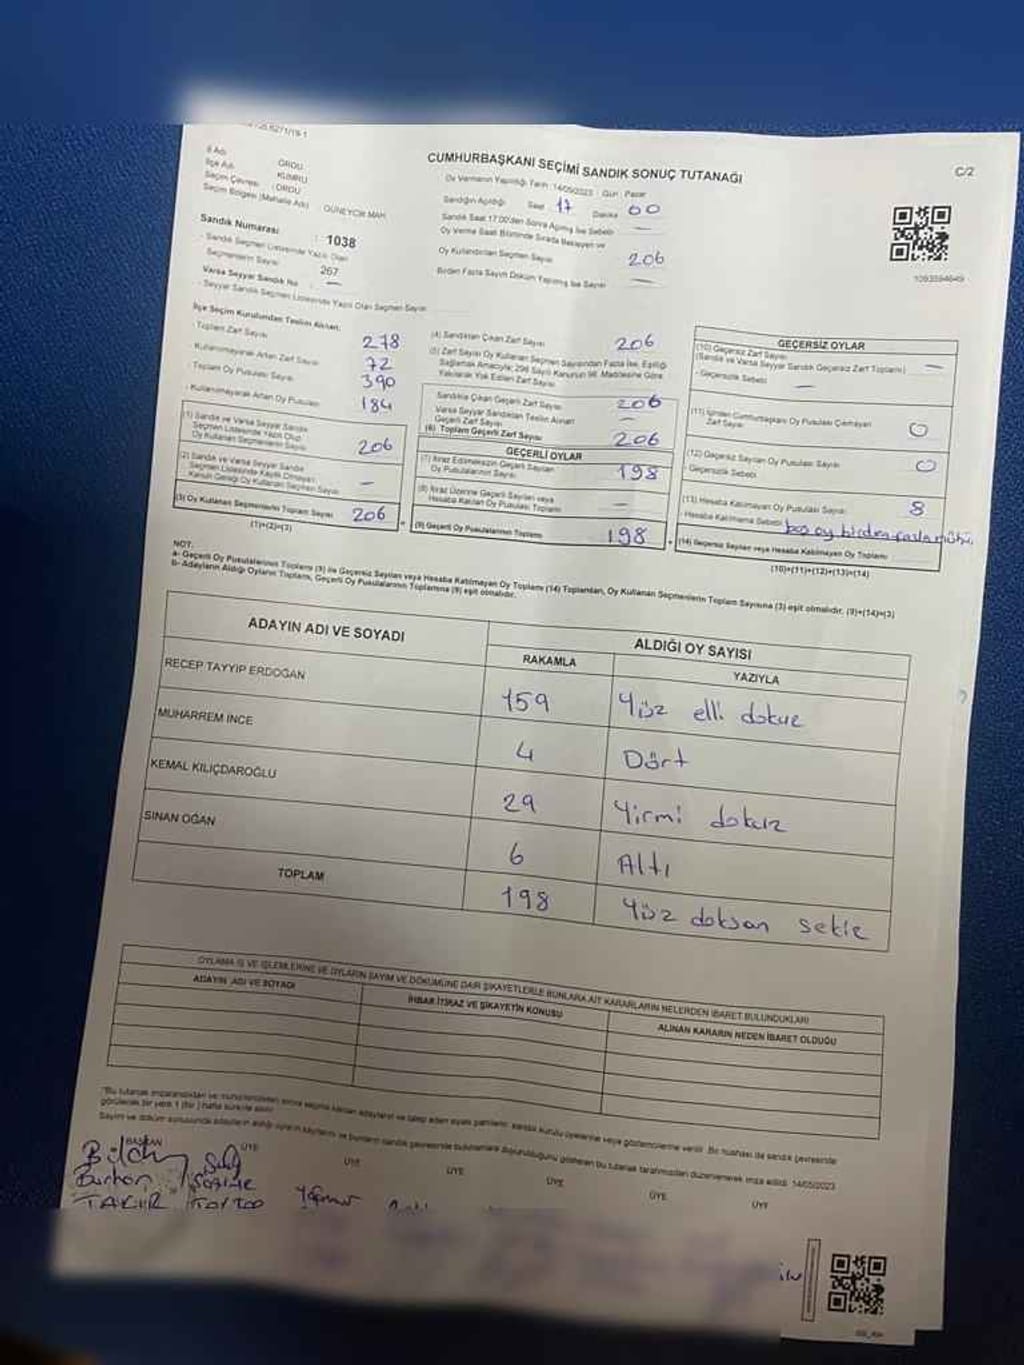 CUMHURBAŞKANI SEÇİMİ SANDIK SONUÇ TUTANAĞI
C/2
İl Adı : ORDU
İlçe Adı : KUMRU
Seçim Çevresi : ORDU
Seçim Bölgesi (Mahalle Adı) GÜNEYCİK MAH.
Oy Vermenin Yapıldığı Tarih : 14/05/2023 Gün : Pazar
Sandığın Açıldığı Saat 17 Dakika 00
Sandık Saat 17:00'den Sonra Açılmış İse Sebebi —
Oy Verme Saati Bitiminde Sırada Bekleyen ve
Oy Kullandırılan Seçmen Sayısı 206
Birden Fazla Sayım Döküm Yapılmış İse Sayısı —
1093594649
Sandık Numarası : 1038
- Sandık Seçmen Listesinde Yazılı Olan
Seçmenlerin Sayısı 267
Varsa Seyyar Sandık No : —
- Seyyar Sandık Seçmen Listesinde Yazılı Olan Seçmen Sayısı
İlçe Seçim Kurulundan Teslim Alınan;
- Toplam Zarf Sayısı 278
- Kullanılmayarak Artan Zarf Sayısı 72
- Toplam Oy Pusulası Sayısı 390
- Kullanılmayarak Artan Oy Pusulası 184
(1) Sandık ve Varsa Seyyar Sandık
Seçmen Listesinde Yazılı Olup
Oy Kullanan Seçmenlerin Sayısı 206
(2) Sandık ve Varsa Seyyar Sandık
Seçmen Listesinde Kayıtlı Olmayan
Kanun Gereği Oy Kullanan Seçmen Sayısı —
(3) Oy Kullanan Seçmenlerin Toplam Sayısı 206
(1)+(2)=(3)
(4) Sandıktan Çıkan Zarf Sayısı 206
(5) Zarf Sayısı Oy Kullanan Seçmen Sayısından Fazla İse, Eşitliği
Sağlamak Amacıyla; 298 Sayılı Kanunun 98. Maddesine Göre
Yakılarak Yok Edilen Zarf Sayısı
Sandıkta Çıkan Geçerli Zarf Sayısı 206
Varsa Seyyar Sandıktan Teslim Alınan
Geçerli Zarf Sayısı —
(6) Toplam Geçerli Zarf Sayısı 206
GEÇERLİ OYLAR
(7) İtiraz Edilmeksizin Geçerli Sayılan
Oy Pusulalarının Sayısı 198
(8) İtiraz Üzerine Geçerli Sayılan veya
Hesaba Katılan Oy Pusulası Toplamı —
(9) Geçerli Oy Pusulalarının Toplamı 198
GEÇERSİZ OYLAR
(10) Geçersiz Zarf Sayısı
(Sandık ve Varsa Seyyar Sandık Geçersiz Zarf Toplamı) —
- Geçersizlik Sebebi —
(11) İçinden Cumhurbaşkanı Oy Pusulası Çıkmayan
Zarf Sayısı 0
(12) Geçersiz Sayılan Oy Pusulası Sayısı 0
- Geçersizlik Sebebi
(13) Hesaba Katılmayan Oy Pusulası Sayısı 8
- Hesaba Katılmama Sebebi boş oy birden fazla mühür
(14) Geçersiz Sayılan veya Hesaba Katılmayan Oy Toplamı
(10)+(11)+(12)+(13)=(14)
NOT:
a- Geçerli Oy Pusulalarının Toplamı (9) ile Geçersiz Sayılan veya Hesaba Katılmayan Oy Toplamı (14) Toplamları, Oy Kullanan Seçmenlerin Toplam Sayısına (3) eşit olmalıdır. (9)+(14)=(3)
b- Adayların Aldığı Oyların Toplamı, Geçerli Oy Pusulalarının Toplamına (9) eşit olmalıdır.
ADAYIN ADI VE SOYADI ALDIĞI OY SAYISI
RAKAMLA YAZIYLA
RECEP TAYYİP ERDOĞAN 159 Yüz elli dokuz
MUHARREM İNCE 4 Dört
KEMAL KILIÇDAROĞLU 29 Yirmi dokuz
SİNAN OĞAN 6 Altı
TOPLAM 198 Yüz doksan sekiz
OYLAMA İŞ VE İŞLEMLERİNE VE OYLARIN SAYIM VE DÖKÜMÜNE DAİR ŞİKAYETLERLE BUNLARA AİT KARARLARIN NELERDEN İBARET BULUNDUKLARI
ADAYIN ADI VE SOYADI İHBAR İTİRAZ VE ŞİKAYETİN KONUSU ALINAN KARARIN NEDEN İBARET OLDUĞU
BAŞKAN ÜYE ÜYE ÜYE ÜYE ÜYE ÜYE
Burhan
TAKIR
Yağmur